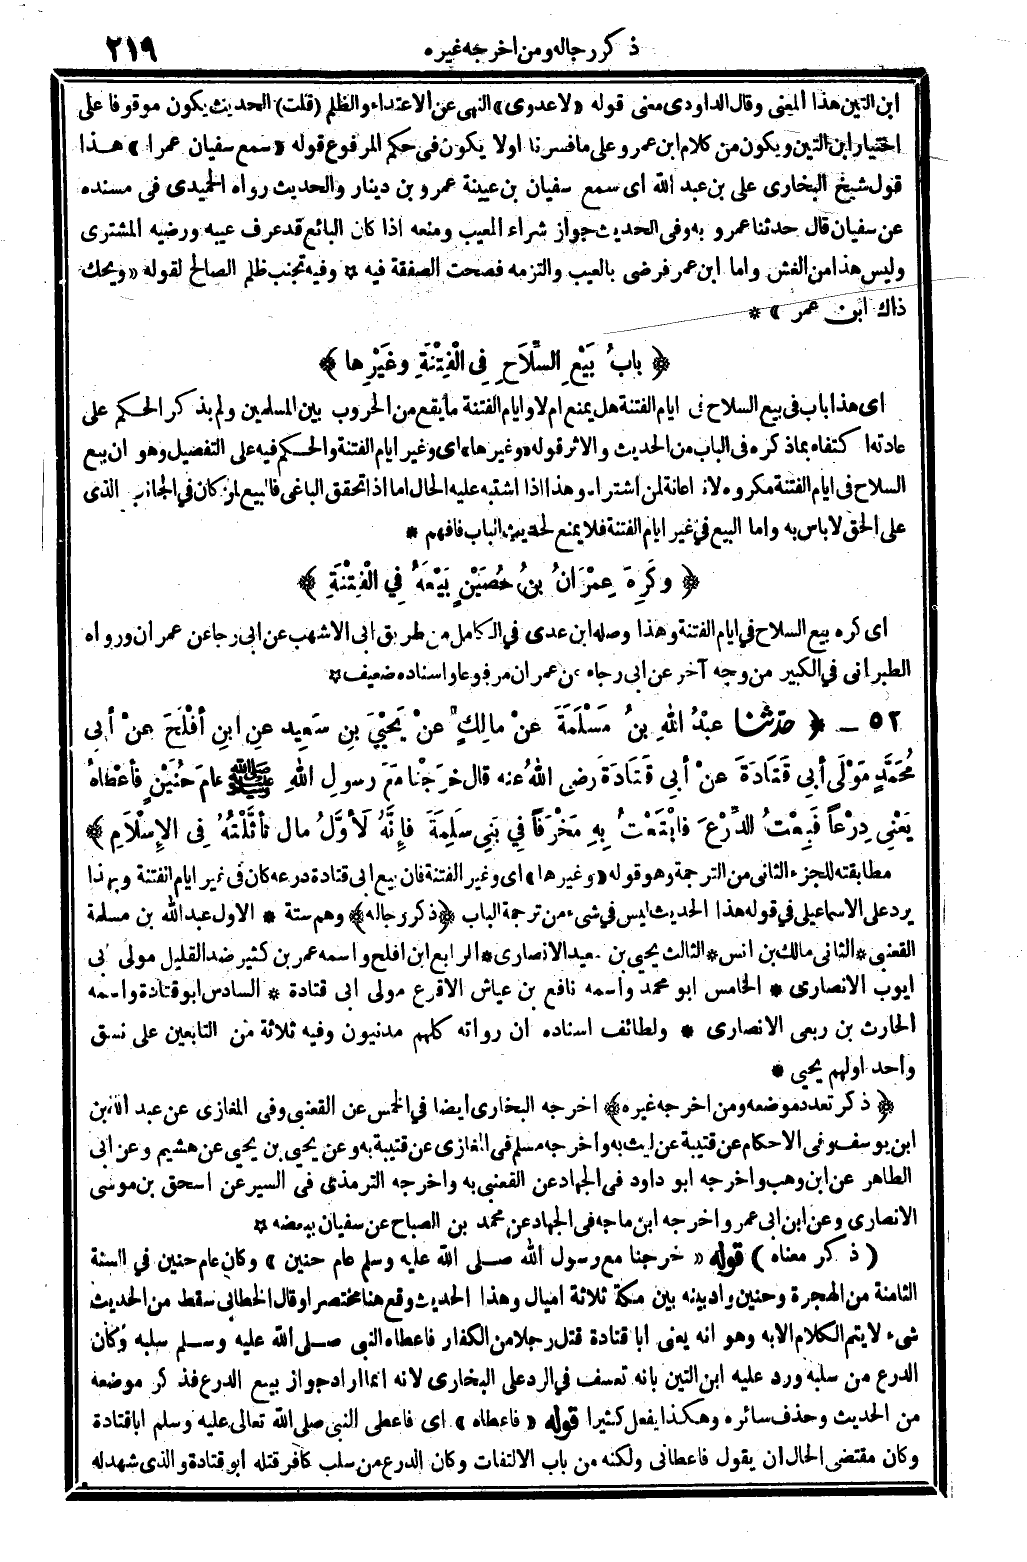 ذكر رجاله ومن اخرجه غيره ٢١٩
ابن التين هذا المعنى وقال الداودى معنى قوله «لاعدوى» النهى عن الاعتداء والظلم (قلت) الحديث يكون موقوفا على
اختيار ابن التين ويكون من كلام ابن عمر وعلى مافسرنا اولا يكون فى حكم المرفوع قوله «سمع سفيان عمرا» هذا
قول شيخ البخارى على بن عبد الله اى سمع سفيان بن عيينة عمرو بن دينار والحديث رواه الحميدى فى مسنده
عن سفيان قال حدثنا عمرو به وفى الحديث جواز شراء المعيب ومنعه اذا كان البائع قد عرف عيبه ورضيه المشترى
وليس هذا من الغش واما ابن عمر فرضى بالعيب والتزمه فصحت الصفقة فيه * وفيه تجنب ظلم الصالح لقوله «ويحك
ذاك ابن عمر» *
﴿ بابُ بَيْعِ السِّلَاحِ فِى الْفِتْنَةِ وغَيْرِها ﴾
اى هذا باب فى بيع السلاح فى ايام الفتنة هل يمنع ام لا وايام الفتنة مايقع من الحروب بين المسلمين ولم يذكر الحكم على
عادته اكتفاء بماذكره فى الباب من الحديث والاثر قوله «وغيرها» اى وغير ايام الفتنة والحكم فيه على التفصيل وهو ان بيع
السلاح فى ايام الفتنة مكروه لانه اعانة لمن اشتراه وهذا اذا اشتبه عليه الحال اما اذا تحقق الباغى فالبيع لمن كان فى الجانب الذى
على الحق لاباس به واما البيع فى غير ايام الفتنة فلا يمنع لحديث الباب فافهم *
﴿ وكَرِهَ عِمْرَانُ بنُ حُصَيْنٍ بَيْعَهُ فِي الْفِتْنَةِ ﴾
اى كره بيع السلاح فى ايام الفتنة وهذا وصله ابن عدى فى الكامل من طريق ابى الاشهب عن ابى رجا عن عمران ورواه
الطبرانى فى الكبير من وجه آخر عن ابى رجاء عن عمران مرفوعا واسناده ضعيف *
٥٢ ـ ﴿ حدّثنا عبْدُ اللهِ بنُ مَسْلَمَةَ عنْ مالِكٍ عنْ يَحْيَى بنِ سَعِيدٍ عنِ ابنِ أفْلَحَ عنْ أبى
مُحَمَّدٍ مَوْلَى أبى قَتَادَةَ عنْ أبى قَتَادَةَ رضى اللهُ عنه قال خرَجْنا مَعَ رسولِ اللهِ ﷺ عامَ حُنَيْنٍ فأعْطاهُ
يَعْنِى دِرْعاً فَبِعْتُ الدِّرْعَ فابْتَعْتُ بِهِ مَخْرَفاً فِي بَنِي سَلِمَةَ فإنَّهُ لَأوَّلُ مال تَأثَّلْتُهُ فِى الإسْلَامِ ﴾
مطابقته للجزء الثانى من الترجمة وهو قوله «وغيرها» اى وغير الفتنة فان بيع ابى قتادة درعه كان فى غير ايام الفتنة وبهذا
يرد على الاسماعيلى فى قوله هذا الحديث ليس فى شىء من ترجمة الباب ﴿ذكر رجاله﴾ وهم ستة * الاول عبدالله بن مسلمة
القعنبى * الثانى مالك بن انس * الثالث يحيى بن سعيد الانصارى * الرابع ابن افلح واسمه عمر بن كثير ضد القليل مولى ابى
ايوب الانصارى * الخامس ابو محمد واسمه نافع بن عياش الاقرع مولى ابى قتادة * السادس ابو قتادة واسمه
الحارث بن ربعى الانصارى * ولطائف اسناده ان رواته كلهم مدنيون وفيه ثلاثة من التابعين على نسق
واحد اولهم يحيى *
﴿ ذكر تعدد موضعه ومن اخرجه غيره ﴾ اخرجه البخارى ايضا فى الخمس عن القعنبى وفى المغازى عن عبد الله بن
ابن يوسف وفى الاحكام عن قتيبة عن ليث به واخرجه مسلم فى المغازى عن قتيبة به وعن يحيى بن يحيى عن هشيم وعن ابى
الطاهر عن ابن وهب واخرجه ابو داود فى الجهاد عن القعنبى به واخرجه الترمذى فى السير عن اسحق بن موسى
الانصارى وعن ابن ابى عمر واخرجه ابن ماجه فى الجهاد عن محمد بن الصباح عن سفيان ببعضه *
( ذكر معناه ) قوله «خرجنا مع رسول الله صلى الله عليه وسلم عام حنين» وكان عام حنين فى السنة
الثامنة من الهجرة وحنين واد بينه بين مكة ثلاثة اميال وهذا الحديث وقع هنا مختصرا وقال الخطابى سقط من الحديث
شىء لايتم الكلام الابه وهو انه يعنى ابا قتادة قتل رجلا من الكفار فاعطاه النبى صلى الله عليه وسلم سلبه وكان
الدرع من سلبه ورد عليه ابن التين بانه تعسف فى الرد على البخارى لانه انما اراد جواز بيع الدرع فذكر موضعه
من الحديث وحذف سائره وهكذا يفعل كثيرا قوله «فاعطاه» اى فاعطى النبى صلى الله تعالى عليه وسلم اباقتادة
وكان مقتضى الحال ان يقول فاعطانى ولكنه من باب الالتفات وكان الدرع من سلب كافر قتله ابو قتادة والذى شهدله